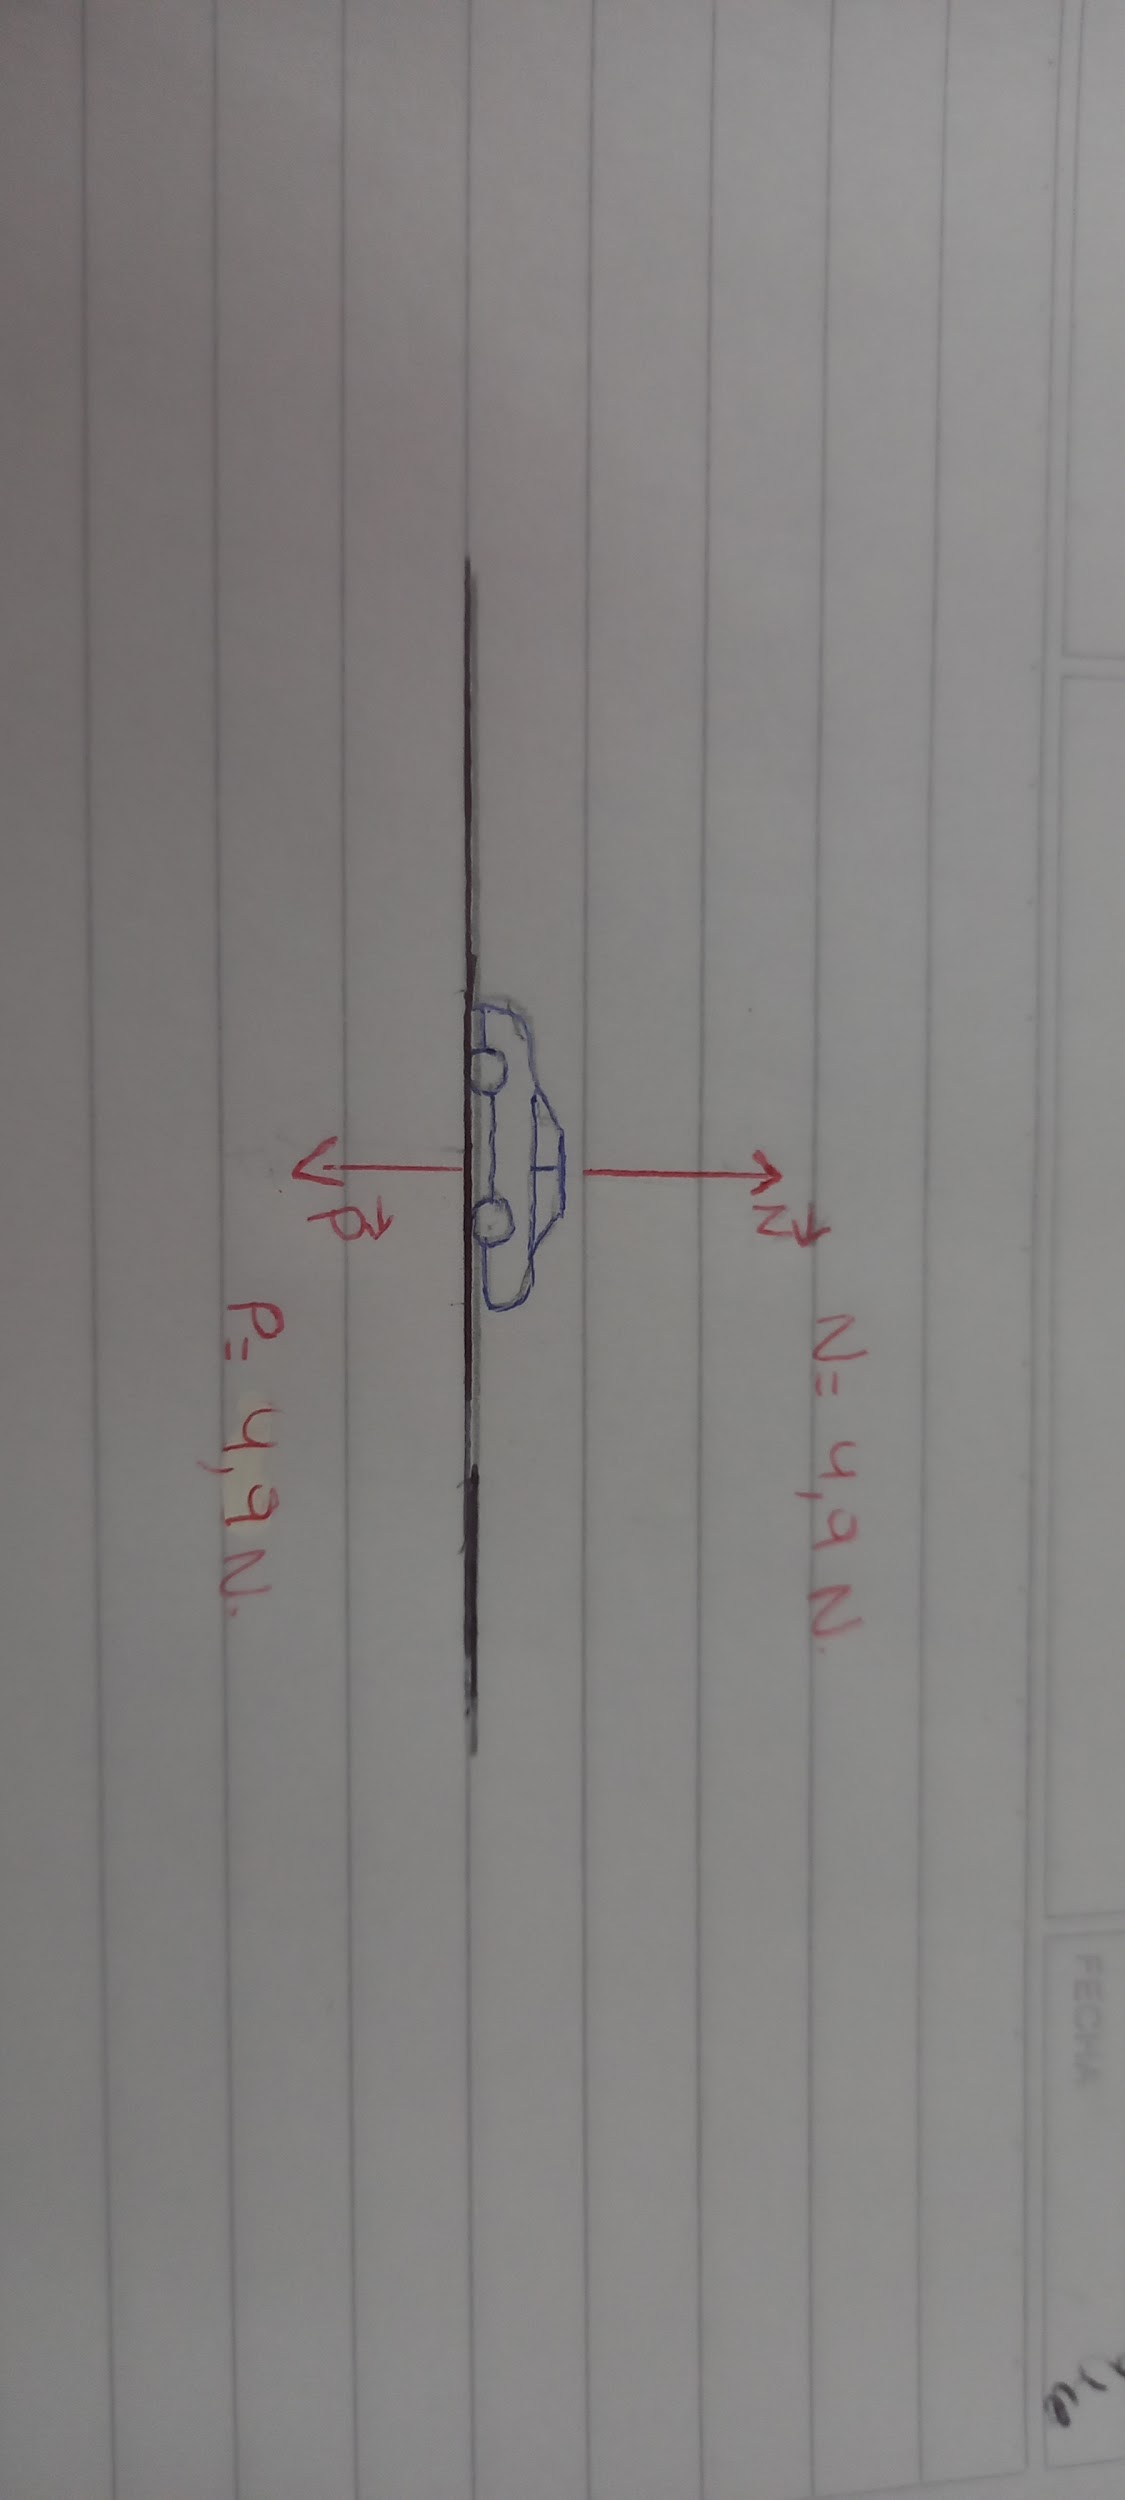 FECHA
N
N= 4,9 N.
P
P= 4,9 N.